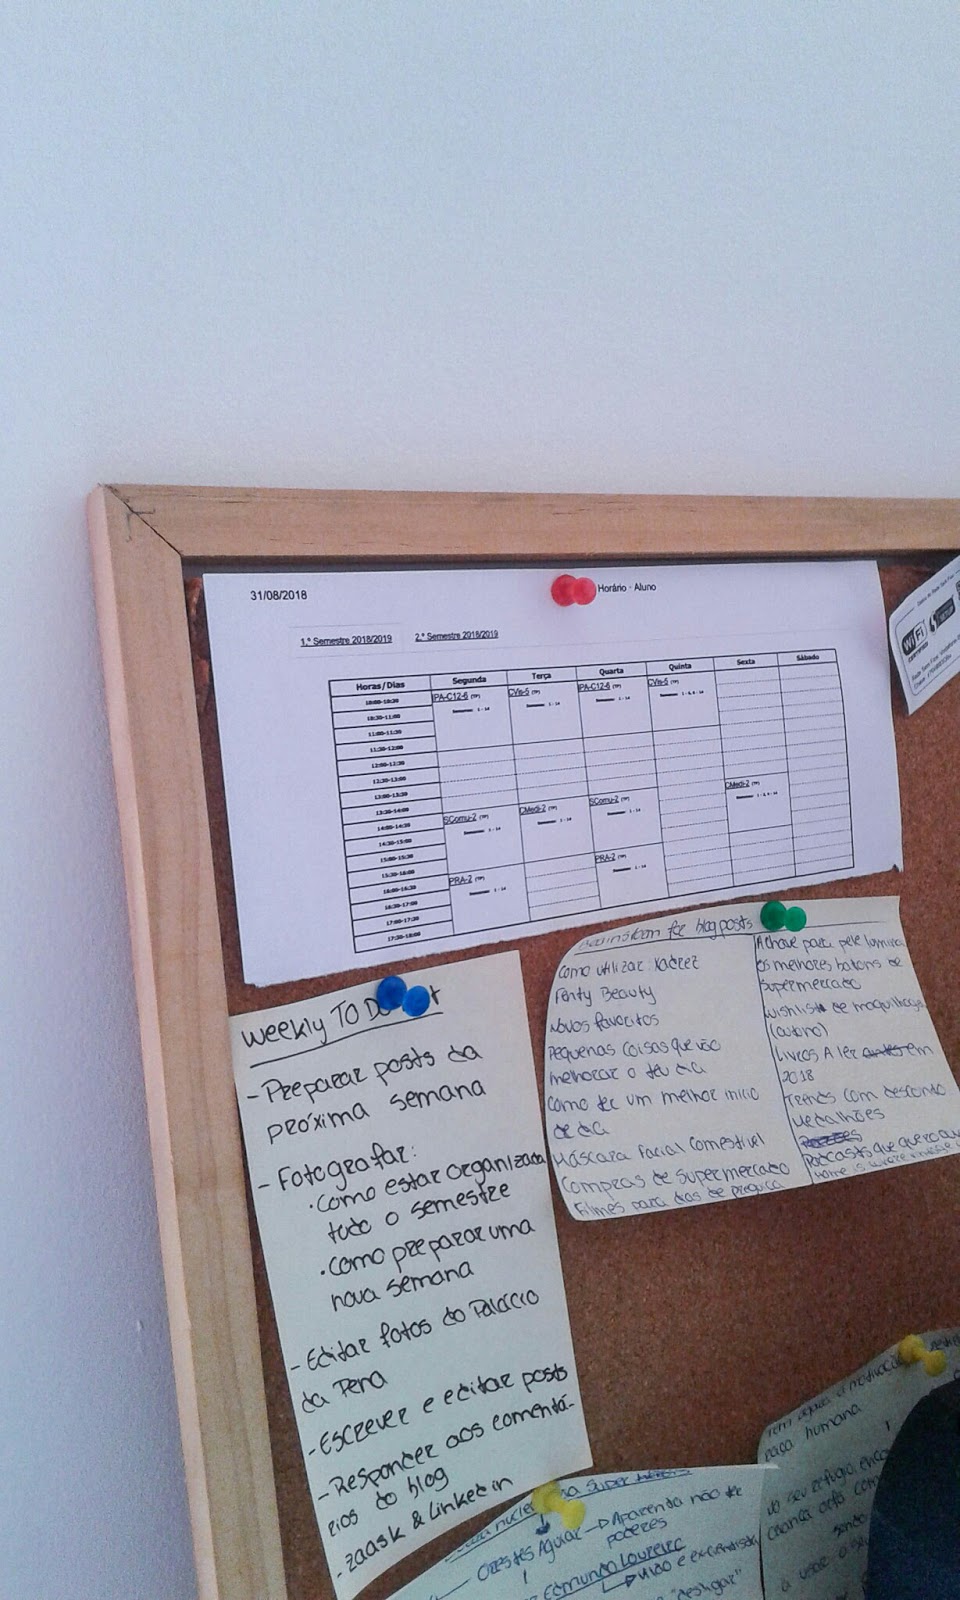 31/08/2018
Horário - Aluno
1.º Semestre 2018/2019 2.º Semestre 2018/2019
Horas/Dias Segunda Terça Quarta Quinta Sexta Sábado
10:00-10:30 IPA-C12-6 (TP) CVis-5 (TP) IPA-C12-6 (TP) CVis-5 (TP)
10:30-11:00
11:00-11:30
11:30-12:00
12:00-12:30
12:30-13:00
13:00-13:30
13:30-14:00
14:00-14:30 SComu-2 (TP) CMedi-2 (TP) SComu-2 (TP) CMedi-2 (TP)
14:30-15:00
15:00-15:30
15:30-16:00
16:00-16:30 PRA-2 (TP) PRA-2 (TP)
16:30-17:00
17:00-17:30
17:30-18:00
WiFi
CERTIFIED
Weekly TO DO
- Preparar posts da
próxima semana
- Fotografar:
· Como estar organizada
tudo o semestre
· Como preparar uma
nova semana
- Editar fotos do Palácio
da Pena
- Escrever e editar posts
- Responder aos comentá-
rios do blog
- zaask & Linkedin
Brainstorm for blog posts
Como utilizar: xadrez
Fenty Beauty
Novos favoritos
Pequenas coisas que vão
melhorar o teu dia
Como ter um melhor inicio
de dia
Máscara facial comestível
Compras de supermercado
Filmes para dias de preguiça
A chave para pele
Os melhores batons de
supermercado
Wishlist de maquilhagem
(outono)
Livros A ler antes em
2018
Trends com desconto
Medalhões
Podcasts que quero
Orestes Aguiar → Aparenta não ter
poderes
Edmundo Loureiro
"desligar"
raça humana